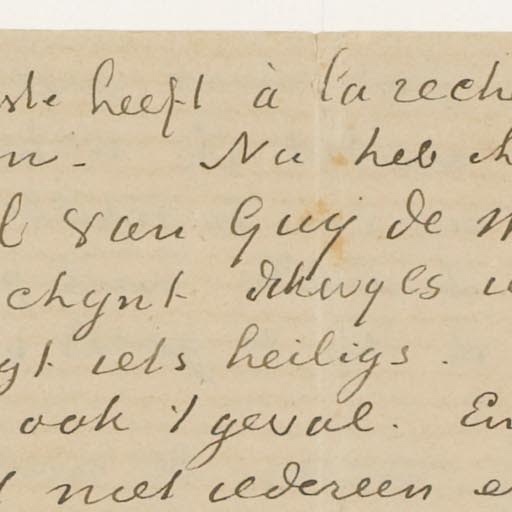 heeft à la rech
n. Nu heb
van Guy de M
schynt dikwyls
gt iets heiligs.
ook 't geval. En
t niet iedereen e